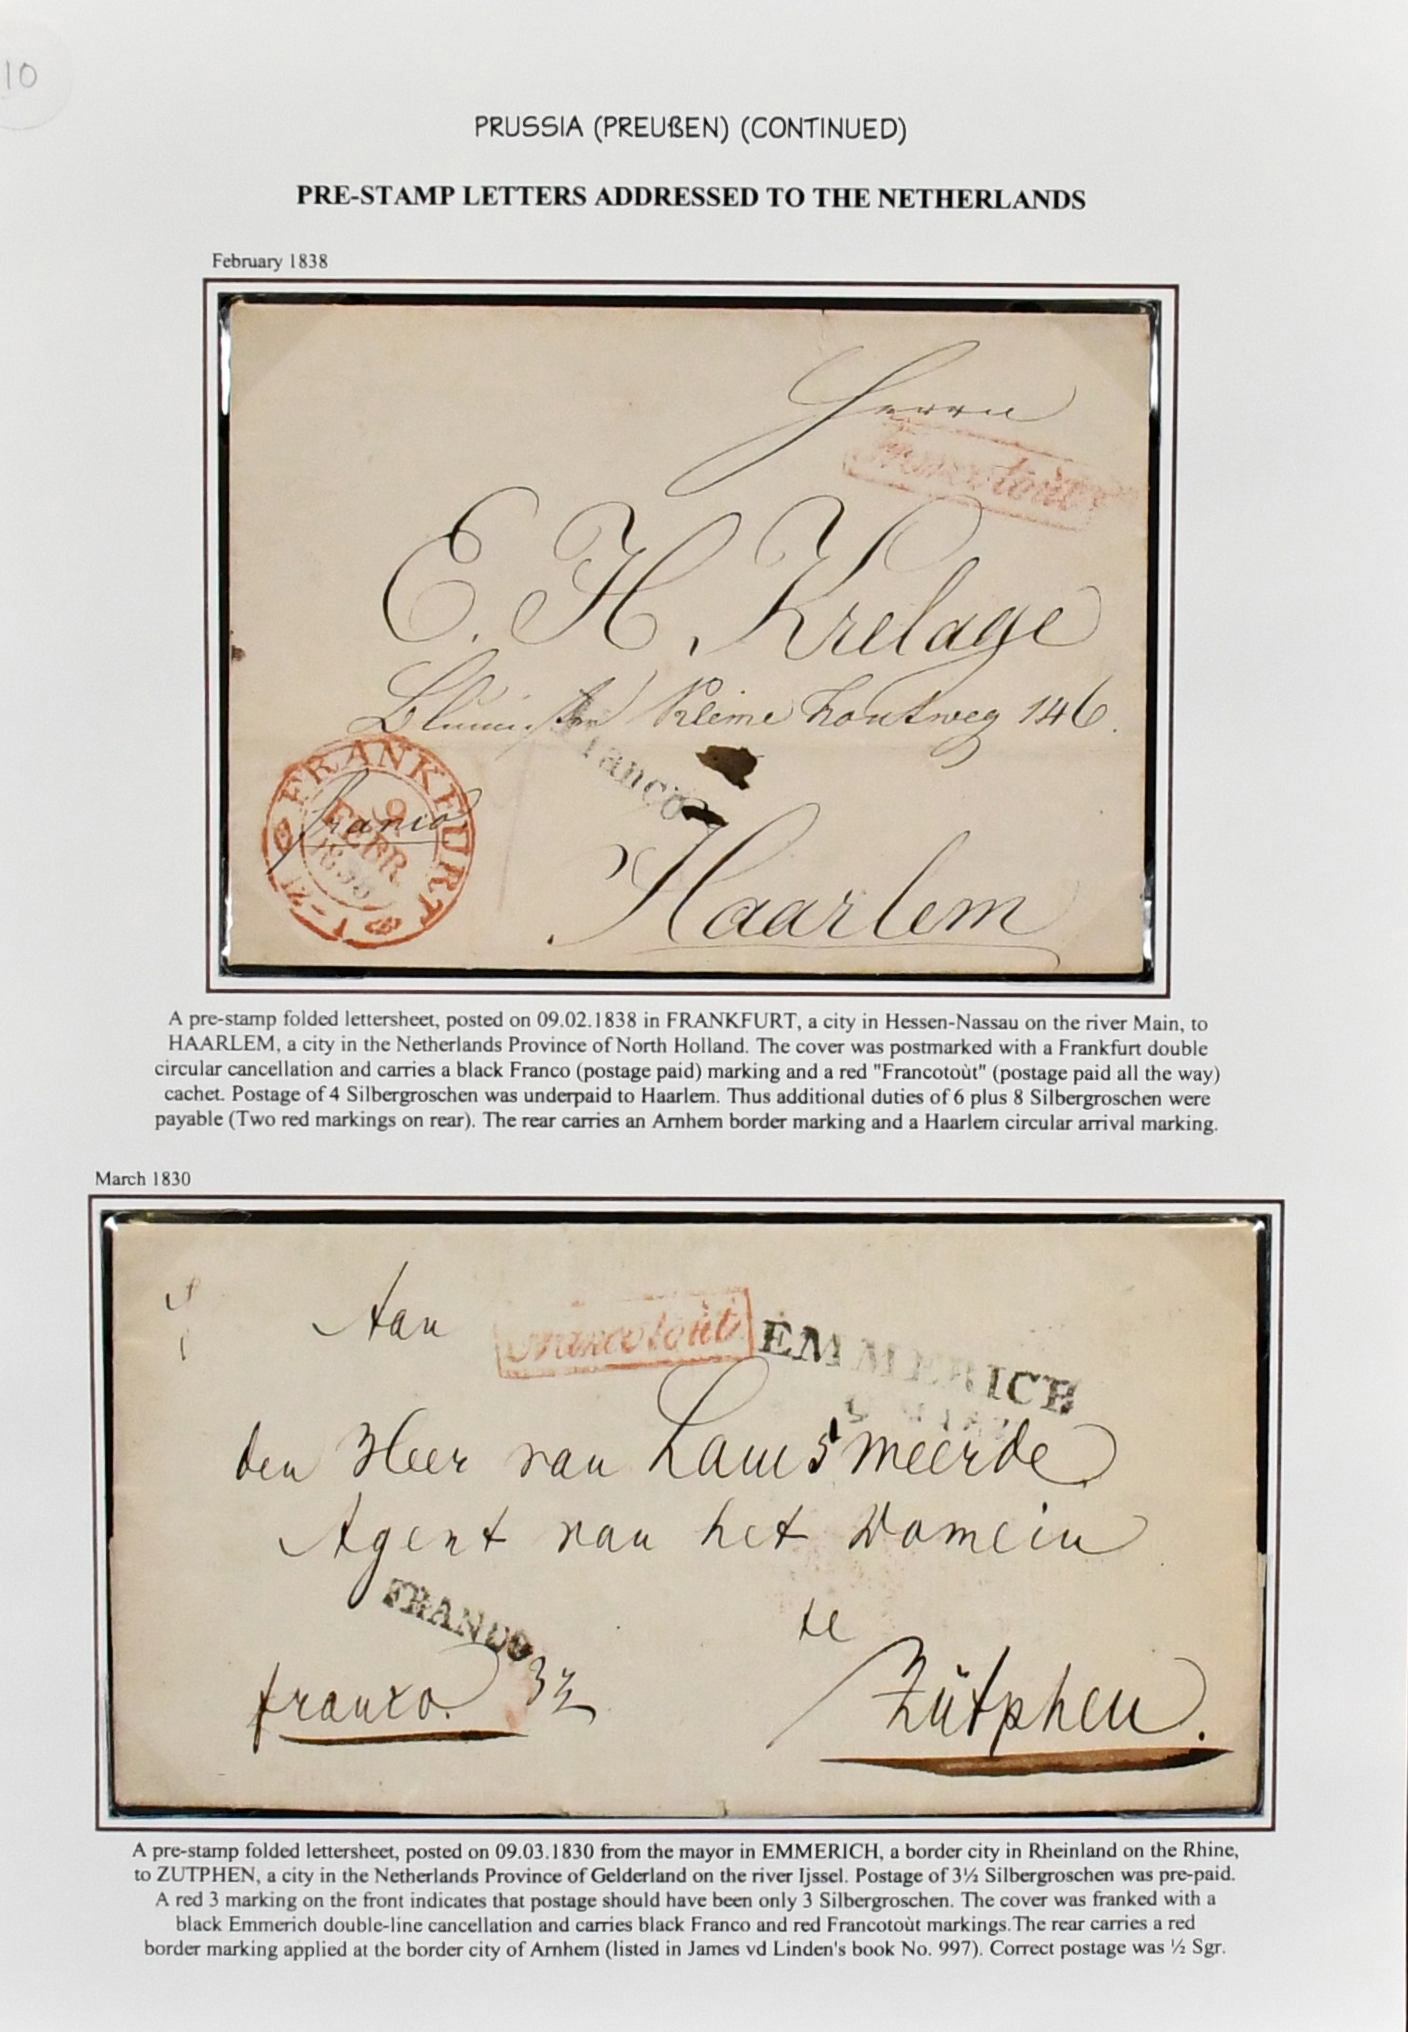 10
PRUSSIA (PREUßEN) (CONTINUED)
PRE-STAMP LETTERS ADDRESSED TO THE NETHERLANDS
February 1838
Herrn
Francotoùt
E. H. Krelage
Kleine Houtweg 146.
Franco
FRANKFURT
9
FEBR.
1838
franco
Haarlem
A pre-stamp folded lettersheet, posted on 09.02.1838 in FRANKFURT, a city in Hessen-Nassau on the river Main, to
HAARLEM, a city in the Netherlands Province of North Holland. The cover was postmarked with a Frankfurt double
circular cancellation and carries a black Franco (postage paid) marking and a red "Francotoùt" (postage paid all the way)
cachet. Postage of 4 Silbergroschen was underpaid to Haarlem. Thus additional duties of 6 plus 8 Silbergroschen were
payable (Two red markings on rear). The rear carries an Arnhem border marking and a Haarlem circular arrival marking.
March 1830
Aan
Francotoùt
EMMERICH
den Heer van Lamsmeerde
Agent van het Domein
FRANCO
te
franco. 3½
Zütphen.
A pre-stamp folded lettersheet, posted on 09.03.1830 from the mayor in EMMERICH, a border city in Rheinland on the Rhine,
to ZUTPHEN, a city in the Netherlands Province of Gelderland on the river Ijssel. Postage of 3½ Silbergroschen was pre-paid.
A red 3 marking on the front indicates that postage should have been only 3 Silbergroschen. The cover was franked with a
black Emmerich double-line cancellation and carries black Franco and red Francotoùt markings.The rear carries a red
border marking applied at the border city of Arnhem (listed in James vd Linden's book No. 997). Correct postage was ½ Sgr.